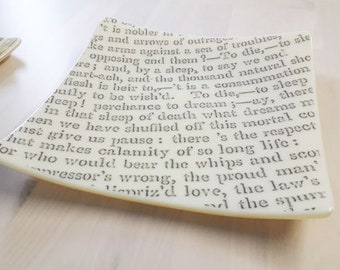 't is nobler in
gs and arrows of outrageous
ake arms against a sea of troubles,
opposing end them?—To die,—to sle
re; and, by a sleep, to say we end
eart-ach, and the thousand natural sho
lesh is heir to,—'t is a consummation
utly to be wish'd. To die,—to sleep
sleep! perchance to dream;—ay, there
in that sleep of death what dreams m
en we have shuffled off this mortal co
ust give us pause: there's the respect
hat makes calamity of so long life:
or who would bear the whips and sco
pressor's wrong, the proud man
dispriz'd love, the law's
nd the spurn